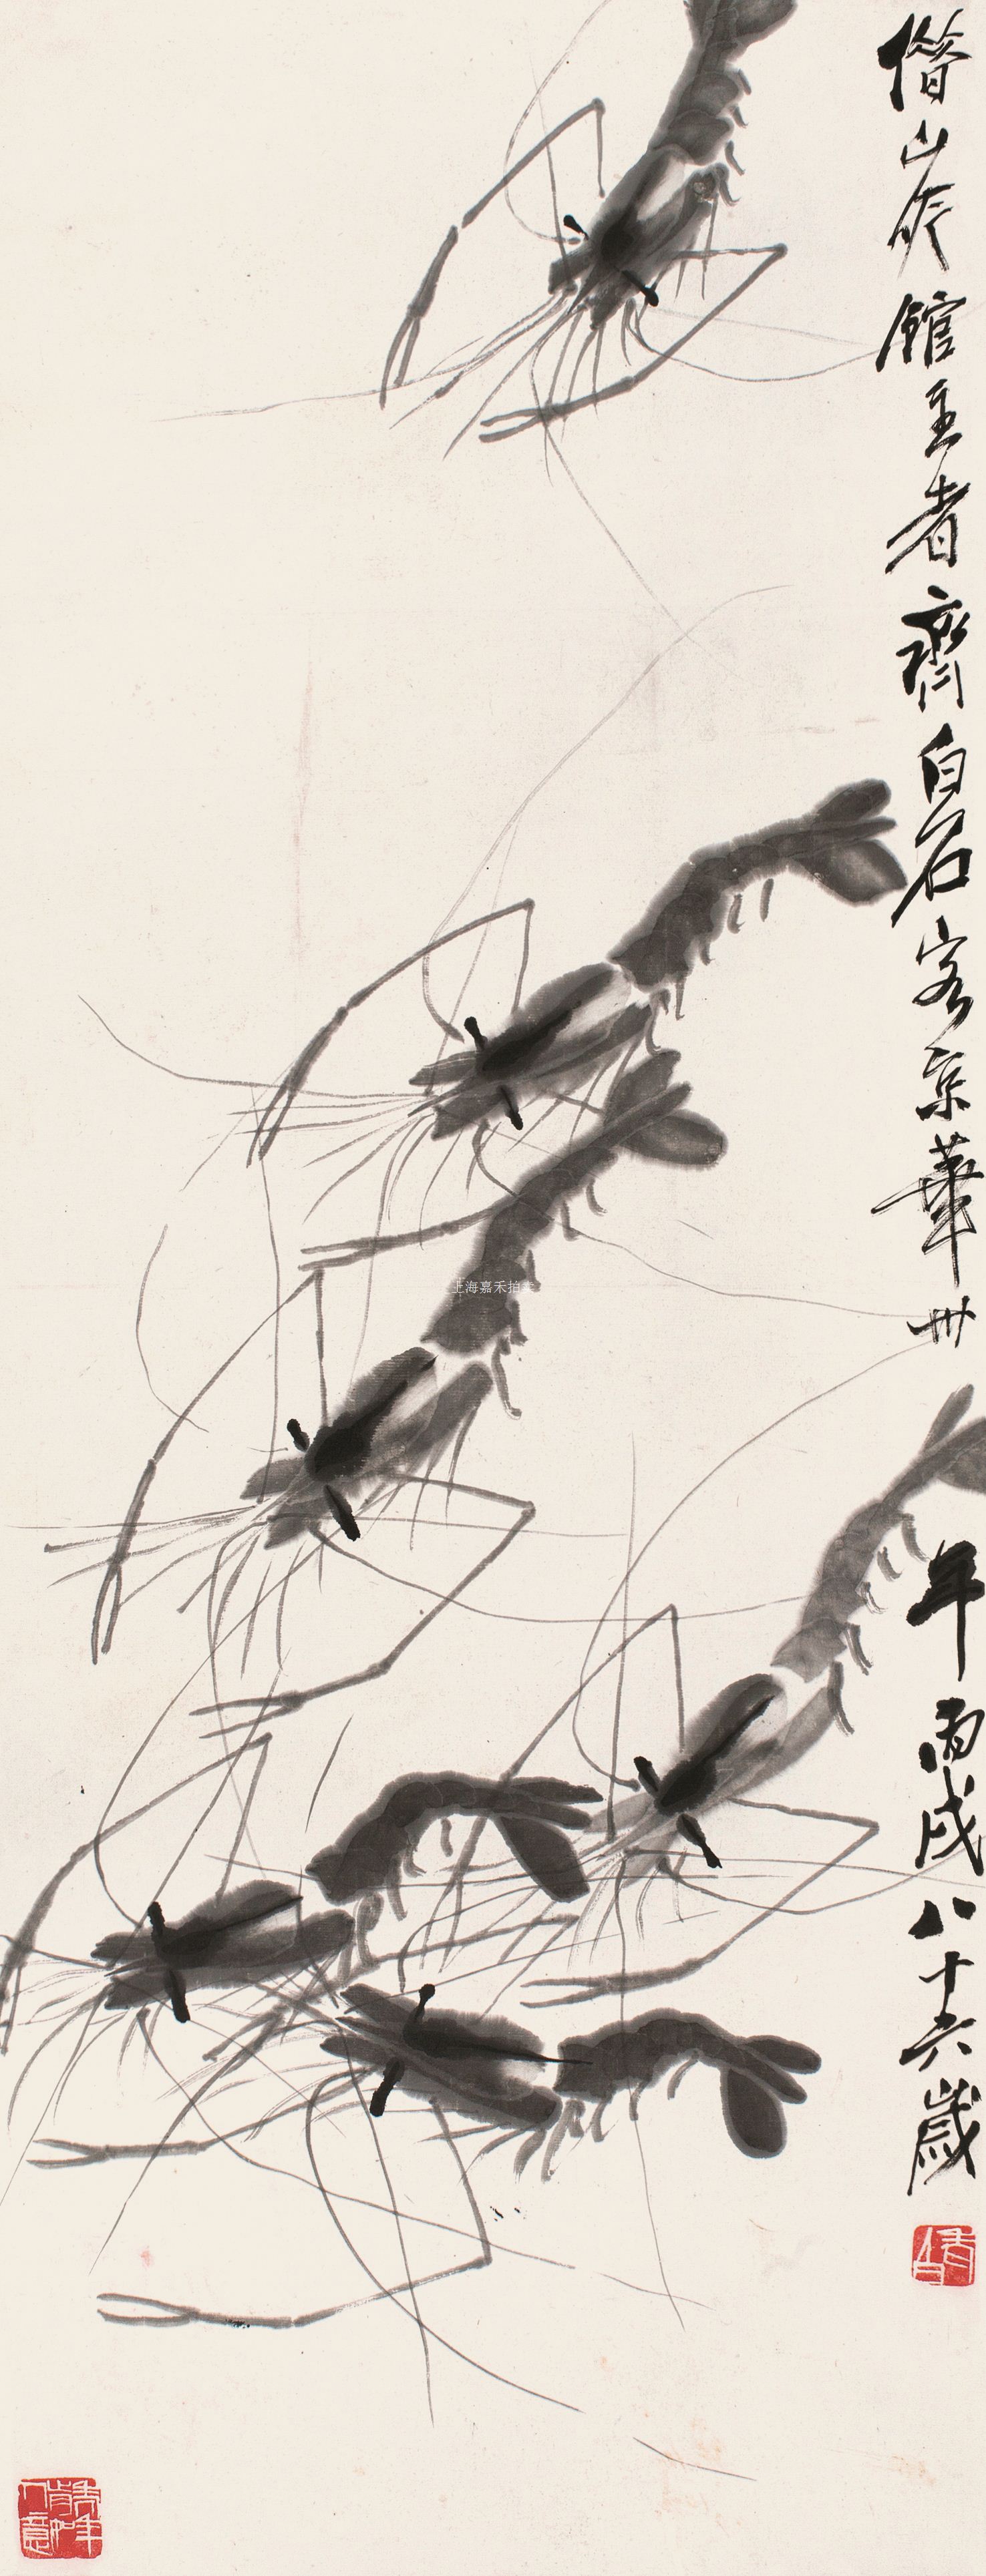 借山吟館主者齊白石客京華卅年丙戌八十六歲
上海嘉禾拍卖